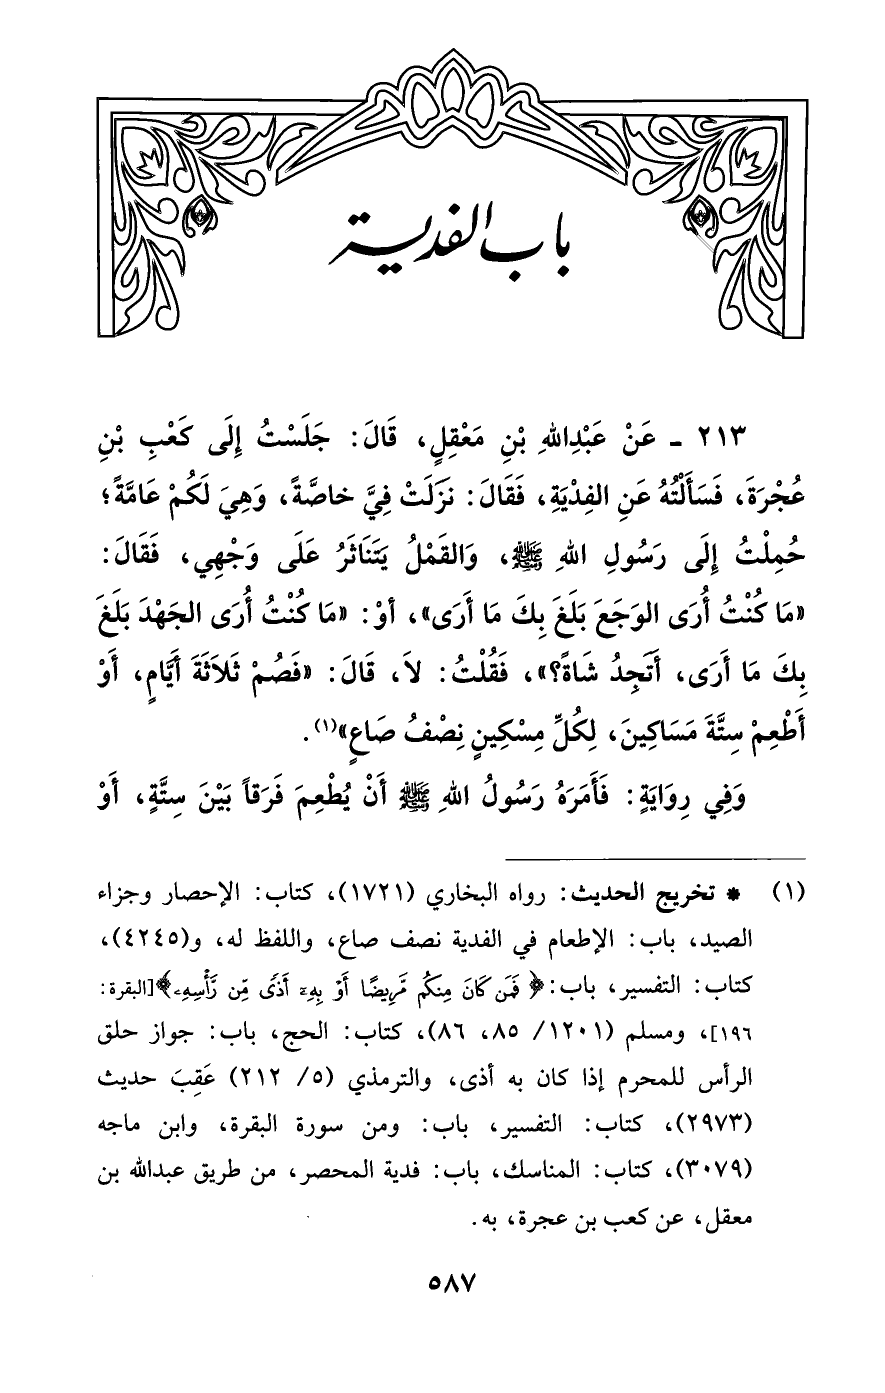 باب الفدية
٢١٣ ـ عَنْ عَبْدِاللهِ بْنِ مَعْقِلٍ، قَالَ: جَلَسْتُ إِلَى كَعْبِ بْنِ
عُجْرَةَ، فَسَأَلْتُهُ عَنِ الفِدْيَةِ، فَقَالَ: نَزَلَتْ فِيَّ خاصَّةً، وَهِيَ لَكُمْ عَامَّةً؛
حُمِلْتُ إِلَى رَسُولِ اللهِ ﷺ، وَالقَمْلُ يَتَنَاثَرُ عَلَى وَجْهِي، فَقَالَ:
«مَا كُنْتُ أُرَى الوَجَعَ بَلَغَ بِكَ مَا أَرَى»، أوْ: «مَا كُنْتُ أُرَى الجَهْدَ بَلَغَ
بِكَ مَا أَرَى، أَتَجِدُ شَاةً؟»، فَقُلْتُ: لاَ، قَالَ: «فَصُمْ ثَلاَثَةَ أَيَّامٍ، أَوْ
أَطْعِمْ سِتَّةَ مَسَاكِينَ، لِكُلِّ مِسْكِينٍ نِصْفُ صَاعٍ»(١).
وَفِي رِوَايَةٍ: فَأَمَرَهُ رَسُولُ اللهِ ﷺ أَنْ يُطْعِمَ فَرَقاً بَيْنَ سِتَّةٍ، أَوْ
(١) * تخريج الحديث: رواه البخاري (١٧٢١)، كتاب: الإحصار وجزاء
الصيد، باب: الإطعام في الفدية نصف صاع، واللفظ له، و(٤٢٤٥)،
كتاب: التفسير، باب: ﴿فَمَن كَانَ مِنكُم مَّرِيضًا أَوْ بِهِۦٓ أَذًى مِّن رَّأْسِهِۦ﴾ [البقرة:
١٩٦]، ومسلم (١٢٠١/ ٨٥، ٨٦)، كتاب: الحج، باب: جواز حلق
الرأس للمحرم إذا كان به أذى، والترمذي (٥/ ٢١٢) عَقِبَ حديث
(٢٩٧٣)، كتاب: التفسير، باب: ومن سورة البقرة، وابن ماجه
(٣٠٧٩)، كتاب: المناسك، باب: فدية المحصر، من طريق عبدالله بن
معقل، عن كعب بن عجرة، به.
٥٨٧